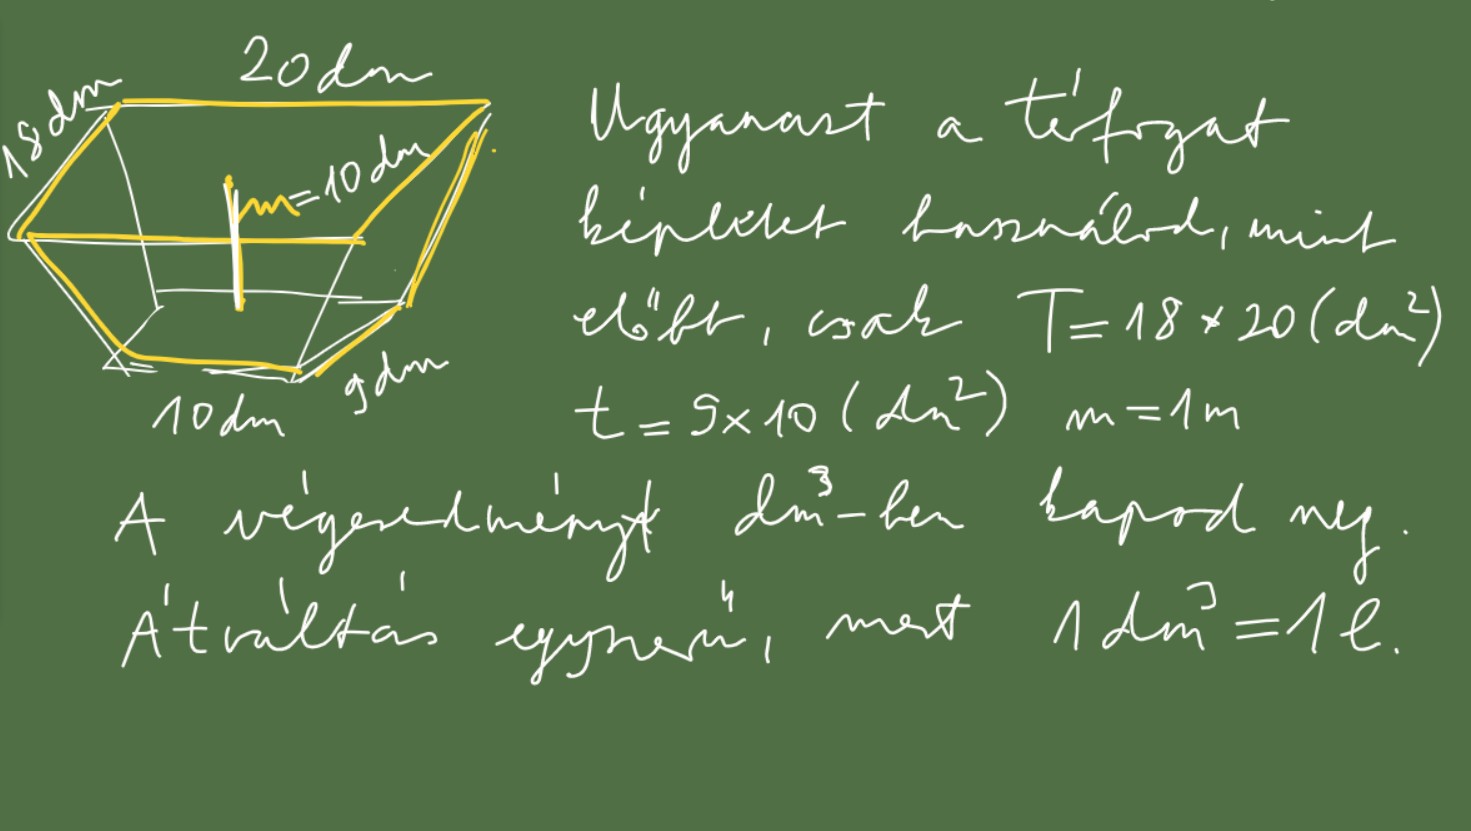 20dm
18dm
m=10dm
10dm
9dm
Ugyanazt a térfogat
képletet használod, mint
előbb, csak T=18×20(dm²)
t=9×10(dm²) m=1m
A végeredményt dm³-ben kapod meg.
Átváltás egyszerű, mert 1dm³=1l.